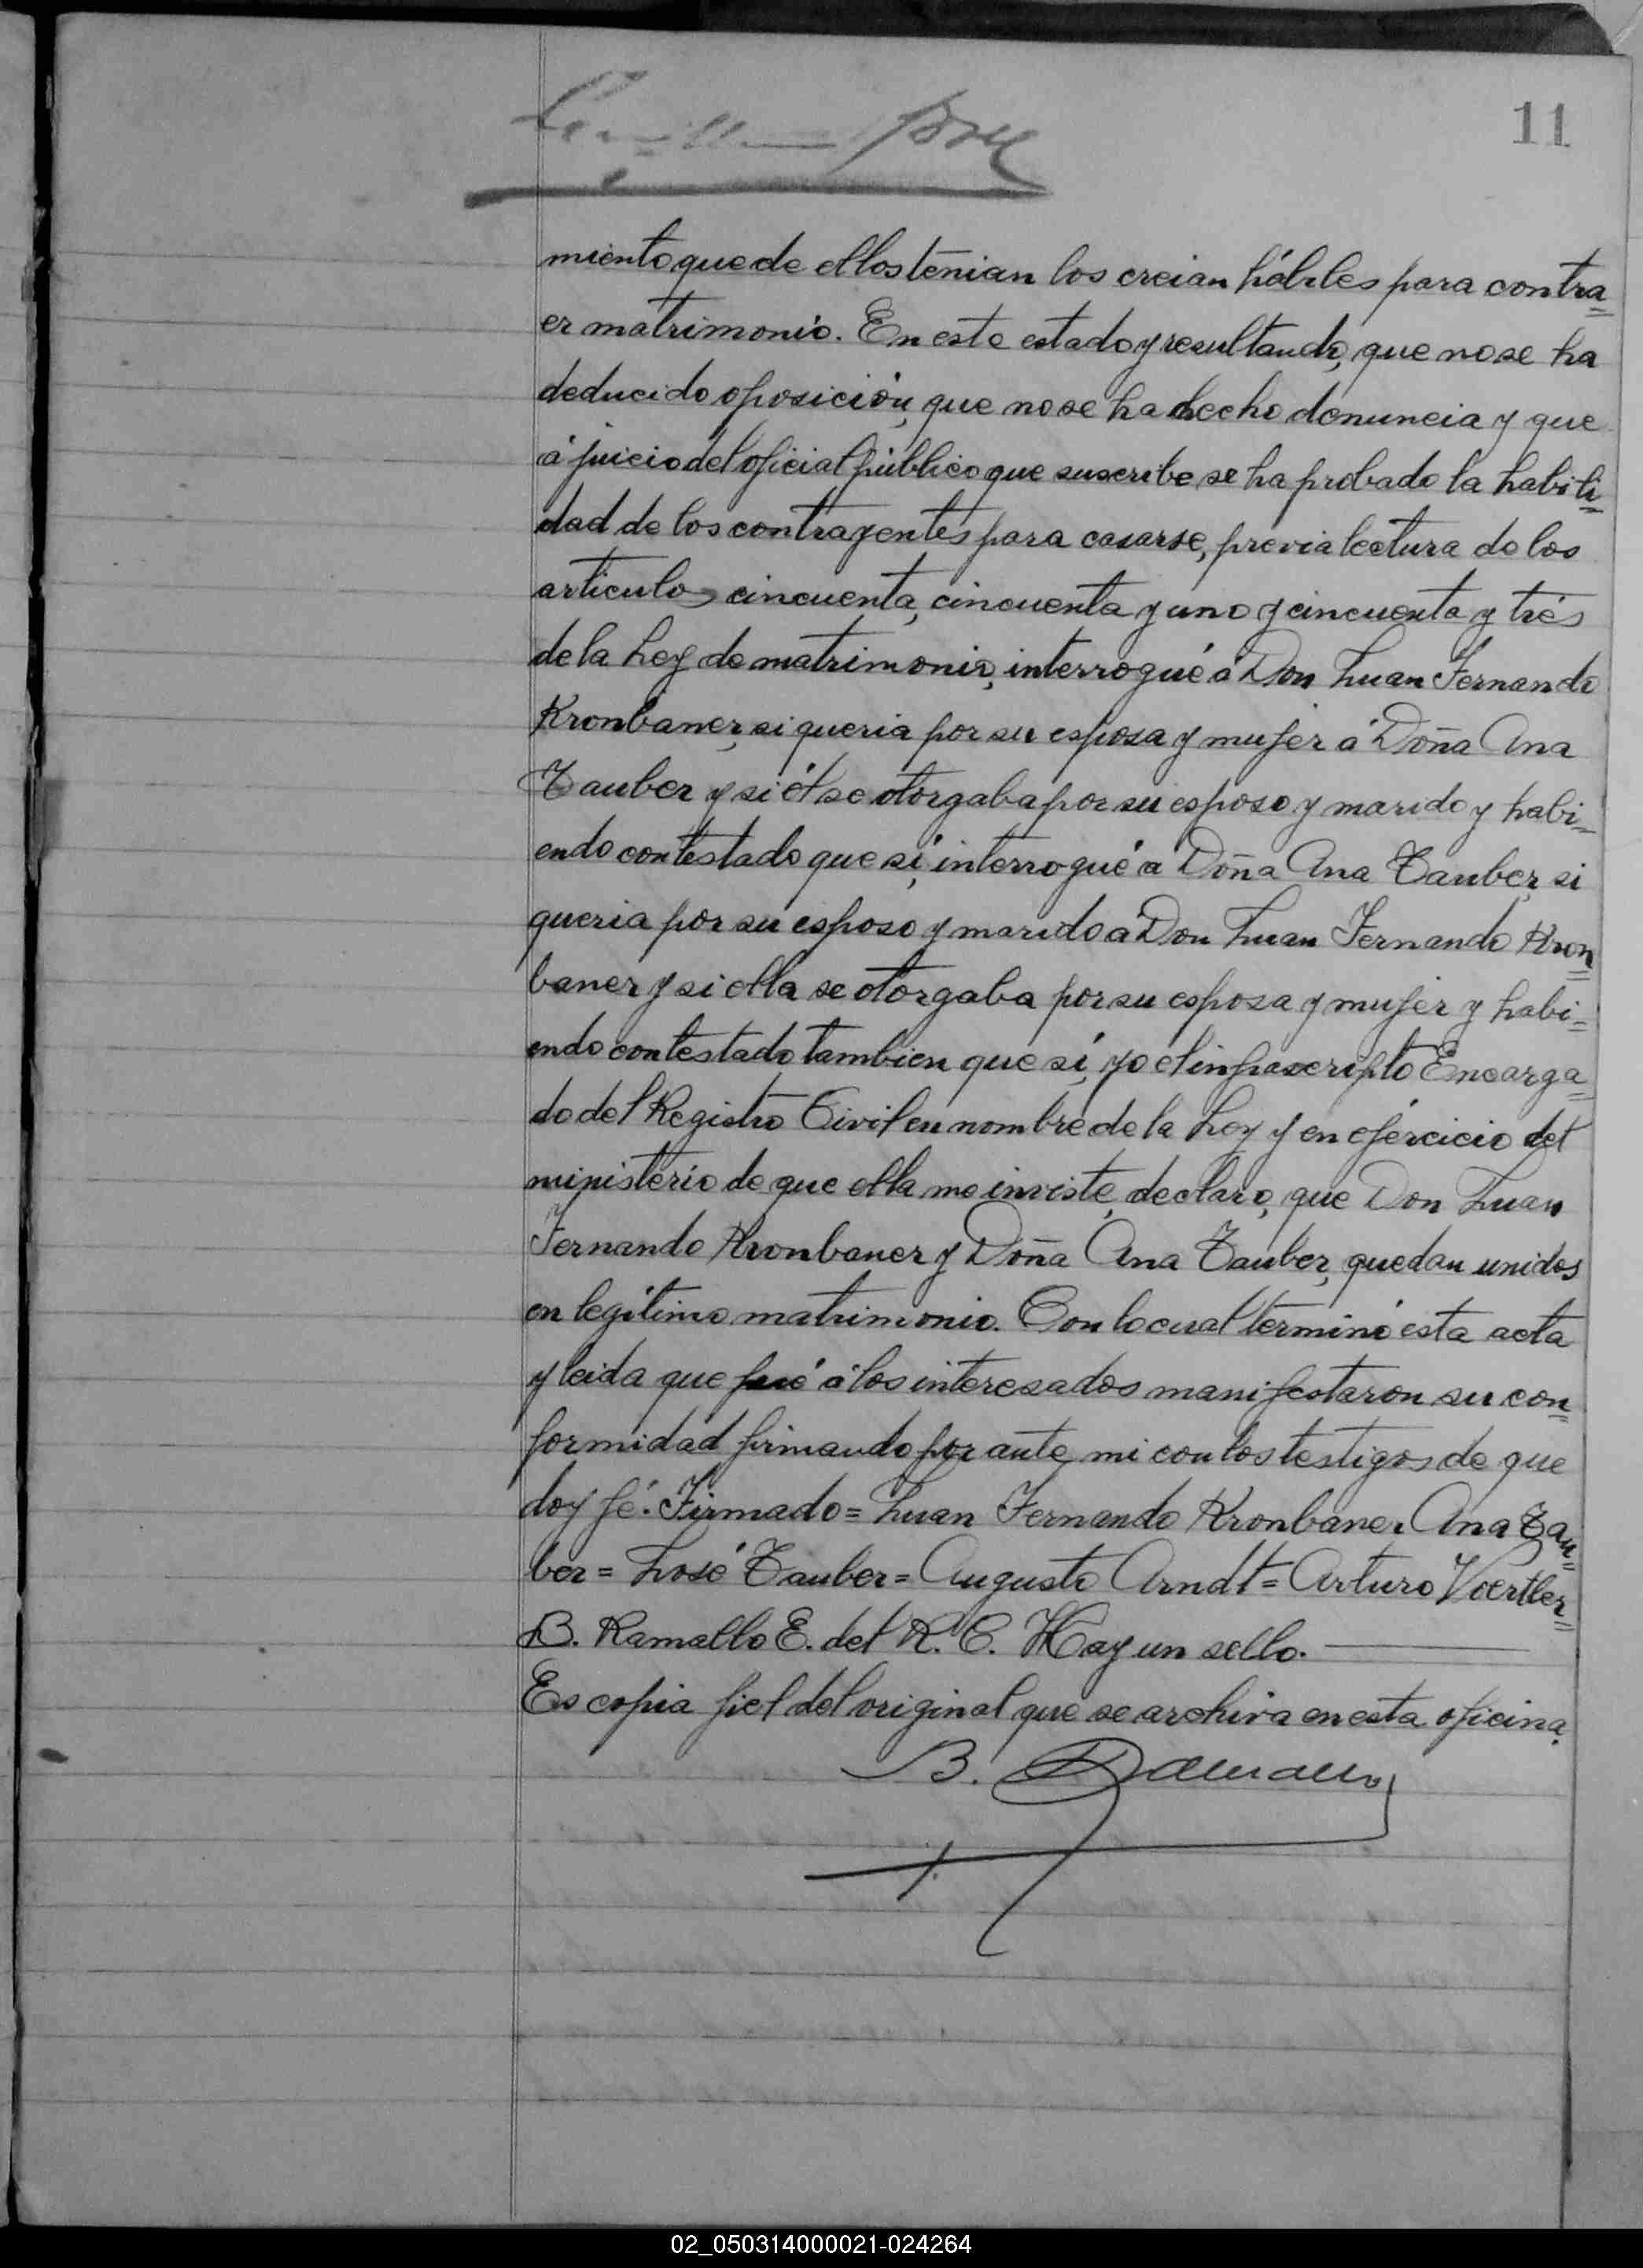 11
miento que de ellos tenian los creian hábiles para contra=
er matrimonio. En este estado y resultando, que no se ha
deducido oposición, que no se ha hecho denuncia y que
á juicio del oficial público que suscribe se ha probado la habili=
dad de los contrayentes para casarse, previa lectura de los
articulos cincuenta, cincuenta y uno y cincuenta y trés
de la Ley de matrimonio, interrogué á Don Juan Fernando
Kronbaner, si queria por su esposa y mujer á Doña Ana
Tauber y si él se otorgaba por su esposo y marido y habi=
endo contestado que sí, interrogué á Doña Ana Tauber, si
queria por su esposo y marido á Don Juan Fernando Kron=
baner y si ella se otorgaba por su esposa y mujer y habi=
endo contestado tambien que sí, yo el infrascripto Encarga=
do del Registro Civil en nombre de la Ley y en ejercicio del
ministerio de que ella me inviste, declaro, que Don Juan
Fernando Kronbaner y Doña Ana Tauber, quedan unidos
en legítimo matrimonio. Con lo cual terminó esta acta
y leida que fué á los interesados manifestaron su con=
formidad firmando por ante mi con los testigos de que
doy fé. Firmado = Juan Fernando Kronbaner Ana Tau=
ber = José Tauber = Augusto Arndt = Arturo Voertler=
B. Ramallo E. del R. C. Hay un sello.
Es copia fiel del original que se archiva en esta oficina.
B. Ramallo
02_050314000021-024264